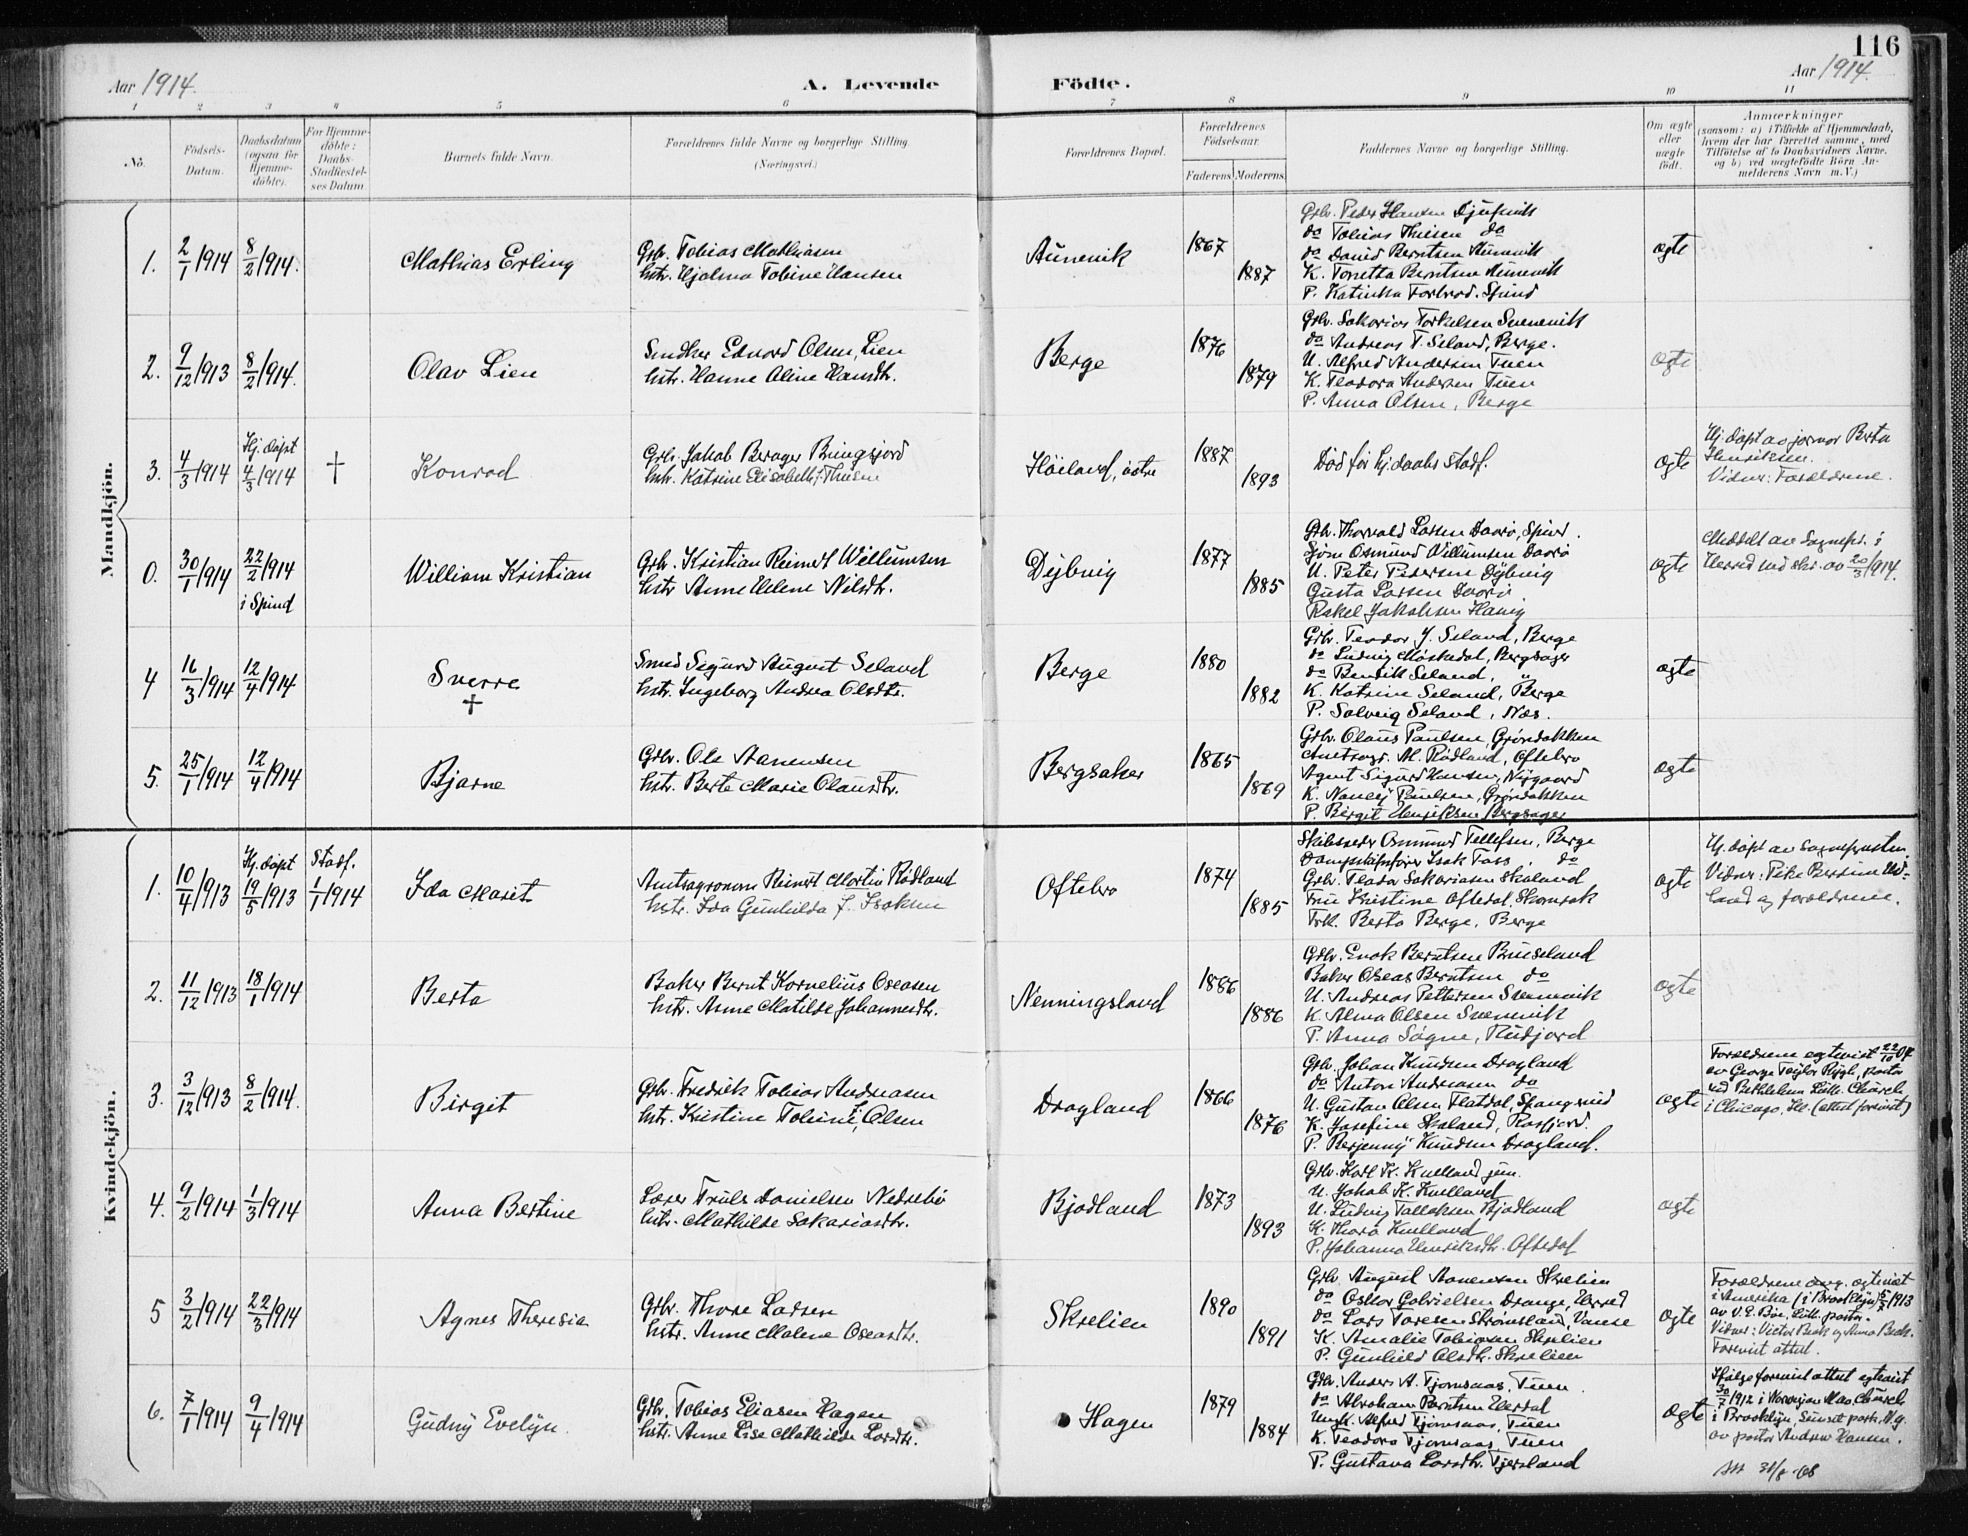 116
Aar 1914.
A. Levende
Födte.
Aar 1914.
1
2
3
4
5
6
7
8
9
10
11
No.
Födsels-
Datum.
Daabsdatum
(ogsaa for
Hjemme-
döbte).
For Hjemme-
döbte:
Daabs-
Stadfæstel-
ses Datum
Barnets fulde Navn.
Forældrenes fulde Navne og borgerlige Stilling.
(Næringsvei.)
Forældrenes Bopæl.
Forældrenes
Födselsaar.
Faderens
Moderens
Faddernes Navne og borgerlige Stilling.
Om ægte
eller
uægte
födt.
Anmærkninger
(saasom: a) i Tilfælde af Hjemmedaab,
hvem der har forrettet samme, med
Tilföielse af to Daabsvidners Navne,
og b) ved uægtefödte Börn An-
melderens Navn m.V.)
Mandkjön.
1.
2/1 1914
8/2 1914.
Mathias Erling
Grbr. Tobias Mathiasen
hstr. Hjalma Tobine Hansen
Aunevik
1867
1887
Grbr. Peder Hansen
do Tobias Thiesen do
do David Berntsen Aunevik
K. Toretta Berntsen Aunevik
P. Katinka Spind
ægte
2.
9/12 1913
8/2 1914.
Olav Lien
Snedker Edvard Olsen, Lien
hstr. Hanne Aline Hansdtr.
Berge
1876
1879
Grbr. Sakarias Torkelsen Svenevik
do Andreas T. Seland, Berge.
U. Alfred Andersen Tuen
K. Teodora Andersen Tuen
P. Anna Olsen, Berge
ægte
3.
4/3 1914
Hj. döpt
4/3 1914
†
Konrad
Grbr. Jakob Berager Bringsjord
hstr. Katrine Elisabeth f. Thiesen
Höiland, östre
1887
1893
Död för hj.daabs stadf.
ægte
Hj. döpt av jormor Berta
Henriksen.
Vidner: Forældrene.
0.
30/1 1914
22/2 1914
i Spind
William Kristian
Grbr. Kristian Reinert Willumsen
hstr Anne Helene Nilsdtr.
Dybvig
1877
1885
Grbr. Thorvald Larsen Davö, Spind.
Sjöm Osmund Willumsen Davö
U. Peter Pedersen Dybvig
Gusta Larsen Davö
Rakel Jakobsen
ægte
Meddelt av Sognepr. i
Herred ved skr. av 20/3 1914.
4
16/3 1914
12/4 1914
Sverre
†
Smed Sigurd August Seland
hstr. Ingeborg Andrea Olsdtr.
Berge
1880
1882
Grbr. Teodor J. Seland, Berge
do Ludvig Möskedal, Bergsager
do Bendik Seland, "
K. Katrine Seland, Berge
P. Solveig Seland, Næs.
ægte
5.
25/1 1914
12/4 1914
Bjarne
Grbr. Ole Aanensen
hstr. Berte Marie Olausdtr.
Bergsaker
1865
1869
Grbr. Olaus Paulsen, Gröndokken
Amtsagr. M. Rödland, Oftebro
Agent Sigurd Hansen, Nygaard
K. Nancy Paulsen, Gröndokken
P. Birgit Henriksen Bergsager
ægte
Kvindekjön.
1.
10/4 1913
Hj. döpt
19/5 1913
Stadf.
1/1 1914
Ida Marit
Amtsagronom Reinert Martin Rödland
hstr. Ida Gunhilda f. Isaksen
Oftebro
1874
1885
Skibsreder Osmund Tellefsen, Berge
Dampskibsförer Isak Foss. do
Grbr. Teodor Sakariasen Skaland
Fru Kristine Oftedal,
Frk. Berta Berge, Berge
ægte
Hj. döpt av sogneprosten.
Vidner: Pike Bersine
land og forældrene.
2.
11/12 1913
18/1 1914
Berta
Baker Bernt Kornelius Oseasen
hstr. Anne Matilde Johannesdtr.
Nenningsland
1886
1886
Grbr. Enok Berntsen Bruseland
Baker Oseas Berntsen do
U. Andreas Pettersen Svennevik
K. Alma Olsen Svennevik
P. Anna Sögne, Rudjord
ægte
3.
3/12 1913
8/2 1914.
Birgit
Grbr. Fredrik Tobias Andreasen
hstr. Kristine Tobine f. Olsen
Dragland
1866
1876
Grbr. Johan Knudsen Dragland
do Anton Andreasen do
U. Gustav Olsen Flatdal, Spangereid
K. Josefine Skaland, Rosfjord.
P. Berjenny Knudsen Dragland.
ægte
Forældrene egteviet 22/10 07
av George Taylor Rygh, pastor
ved Bethlehem Luth. Church
i Chicago, Ill. (attest forevist)
4.
9/2 1914
1/3 1914
Anna Bertine
Læser Truls Danielsen Nedrebö
hstr. Mathilde Sakariasdtr.
Bjodland
1873
1893
Grbr. Karl K. Kvelland jun.
U. Jakob K. Kvelland
U. Ludvig Tallaksen Bjodland
K. Thora Kvelland
P. Johanna Henriksdtr. Oftedal
ægte
5
3/2 1914
22/3 1914
Agnes Theresia
Grbr. Thore Larsen
hstr. Anne Malene Oseasdtr.
Skrelien
1890
1891
Grbr. August Aanensen Skrelien
do Oskar Gabrielsen Drange, Herred
do Lars Toresen Strömsland, Vanse
K. Amalie Tobiasen Skrelien
P. Gunhild Olsdtr. Skrelien
ægte
Forældrene ang. egteviet
i Amerika (i Brooklyn) 5/7 1913
av V. E. Böe, Luth. pastor.
Vidner: Victor Beck og Anna Beck.
Forevist attest.
6.
7/1 1914
9/4 1914
Gudny Evelyn.
Grbr. Tobias Eliasen Hagen
hstr. Anne Lise Mathilde Larsdtr.
Hagen
1879
1884
Grbr. Anders A. Tjomsaas, Tuen.
do Abraham Berntsen Herdal
Ungk. Alfred Tjomsaas, Tuen
K. Teodora Tjomsaas, Tuen
P. Gustava Larsdtr. Tjersland
ægte
Ifölge forevist attest egteviet
30/7 1912 i Norwegian Man. Church
i Brooklyn, Sunset park, N.y.
av pastor Andrew Hansen.
31/8-68